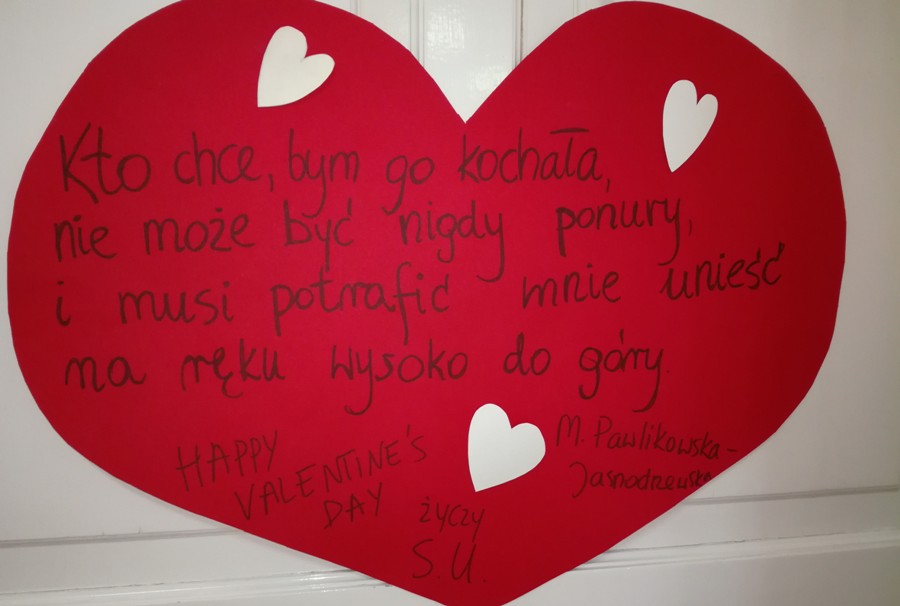 Kto chce, bym go kochała,
nie może być nigdy ponury,
i musi potrafić mnie unieść
na ręku wysoko do góry.
M. Pawlikowska-
Jasnodrzewska
HAPPY
VALENTINE'S
DAY
życzy
S.U.